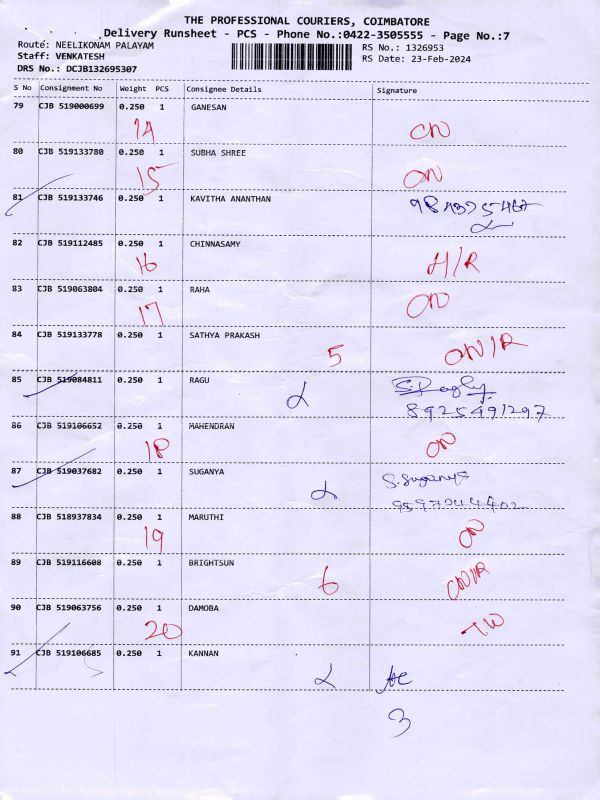 THE PROFESSIONAL COURIERS, COIMBATORE
Delivery Runsheet - PCS - Phone No.:0422-3505555 - Page No.:7
Route: NEELIKONAM PALAYAM RS No.: 1326953
Staff: VENKATESH RS Date: 23-Feb-2024
DRS No.: DCJB132695307
S No Consignment No Weight PCS Consignee Details Signature
79 CJB 519000699 0.250 1 GANESAN
14 ON
80 CJB 519133780 0.250 1 SUBHA SHREE
15 ON
81 CJB 519133746 0.250 1 KAVITHA ANANTHAN
82 CJB 519112485 0.250 1 CHINNASAMY
16 H/R
83 CJB 519063804 0.250 1 RAHA
17 ON
84 CJB 519133778 0.250 1 SATHYA PRAKASH
5 ON/R
85 CJB 519084811 0.250 1 RAGU
8925491297
86 CJB 519106652 0.250 1 MAHENDRAN
18 ON
87 CJB 519037682 0.250 1 SUGANYA
S.Suganya
9597044402
88 CJB 518937834 0.250 1 MARUTHI
19 ON
89 CJB 519116608 0.250 1 BRIGHTSUN
6 ON/R
90 CJB 519063756 0.250 1 DAMOBA
20 TW
91 CJB 519106685 0.250 1 KANNAN
3